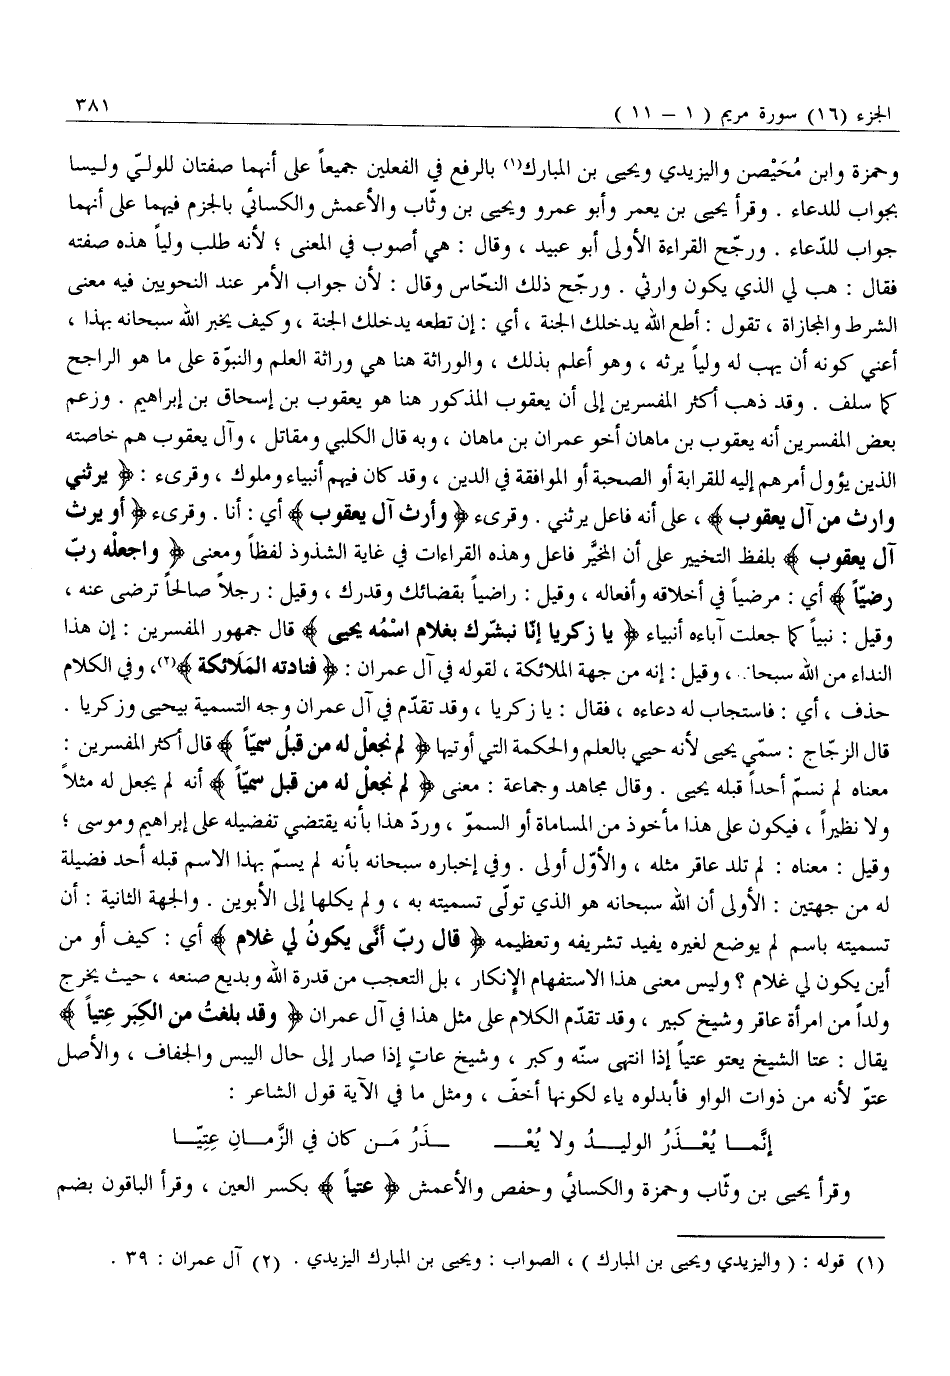 الجزء (١٦) سورة مريم ( ١ – ١١ )
٣٨١
وحمزة وابن مُحَيْصن واليزيدي ويحيى بن المبارك(١) بالرفع في الفعلين جميعاً على أنهما صفتان للوليّ وليسا
بجواب للدعاء . وقرأ يحيى بن يعمر وأبو عمرو ويحيى بن وثّاب والأعمش والكسائي بالجزم فيهما على أنهما
جواب للدّعاء . ورجّح القراءة الأولى أبو عبيد ، وقال : هي أصوب في المعنى ؛ لأنه طلب ولياً هذه صفته
فقال : هب لي الذي يكون وارثي . ورجّح ذلك النحّاس وقال : لأن جواب الأمر عند النحويين فيه معنى
الشرط والمجازاة ، تقول : أطع الله يدخلك الجنة ، أي : إن تطعه يدخلك الجنة ، وكيف يخبر الله سبحانه بهذا ،
أعني كونه أن يهب له ولياً يرثه ، وهو أعلم بذلك ، والوراثة هنا هي وراثة العلم والنبوّة على ما هو الراجح
كما سلف . وقد ذهب أكثر المفسرين إلى أن يعقوب المذكور هنا هو يعقوب بن إسحاق بن إبراهيم . وزعم
بعض المفسرين أنه يعقوب بن ماهان أخو عمران بن ماهان ، وبه قال الكلبي ومقاتل ، وآل يعقوب هم خاصته
الذين يؤول أمرهم إليه للقرابة أو الصحبة أو الموافقة في الدين ، وقد كان فيهم أنبياء وملوك ، وقرىء : ﴿ يرثني
وارث من آل يعقوب ﴾ ، على أنه فاعل يرثني . وقرىء ﴿ وأرث آل يعقوب ﴾ أي : أنا . وقرىء ﴿ أو يرث
آل يعقوب ﴾ بلفظ التخيير على أن المخيَّر فاعل وهذه القراءات في غاية الشذوذ لفظاً ومعنى ﴿ واجعلْه ربّ
رضيّاً ﴾ أي : مرضياً في أخلاقه وأفعاله ، وقيل : راضياً بقضائك وقدرك ، وقيل : رجلاً صالحاً ترضى عنه ،
وقيل : نبياً كما جعلت آباءه أنبياء ﴿ يا زكريا إنّا نبشّرك بغلام اسْمُه يحيى ﴾ قال جمهور المفسرين : إن هذا
النداء من الله سبحا ، وقيل : إنه من جهة الملائكة ، لقوله في آل عمران : ﴿ فنادته المَلَائكة ﴾(٢)، وفي الكلام
حذف ، أي : فاستجاب له دعاءه ، فقال : يا زكريا ، وقد تقدّم في آل عمران وجه التسمية بيحيى وزكريا .
قال الزجّاج : سمّي يحيى لأنه حيي بالعلم والحكمة التي أوتيها ﴿ لم نجعلْ له من قبلُ سميّاً ﴾ قال أكثر المفسرين :
معناه لم نسمّ أحداً قبله يحيى . وقال مجاهد وجماعة : معنى ﴿ لم نجعلْ له من قبل سميّاً ﴾ أنه لم يجعل له مثلاً
ولا نظيراً ، فيكون على هذا مأخوذ من المساماة أو السموّ ، وردّ هذا بأنه يقتضي تفضيله على إبراهيم وموسى ؛
وقيل : معناه : لم تلد عاقر مثله ، والأوّل أولى . وفي إخباره سبحانه بأنه لم يسمّ بهذا الاسم قبله أحد فضيلة
له من جهتين : الأولى أن الله سبحانه هو الذي تولّى تسميته به ، ولم يكلها إلى الأبوين . والجهة الثانية : أن
تسميته باسم لم يوضع لغيره يفيد تشريفه وتعظيمه ﴿ قال ربّ أنّى يكونُ لي غلام ﴾ أي : كيف أو من
أين يكون لي غلام ؟ وليس معنى هذا الاستفهام الإنكار ، بل التعجب من قدرة الله وبديع صنعه ، حيث يخرج
ولداً من امرأة عاقر وشيخ كبير ، وقد تقدّم الكلام على مثل هذا في آل عمران ﴿ وقد بلغتُ من الكِبَر عِتياً ﴾
يقال : عتا الشيخ يعتو عتياً إذا انتهى سنّه وكبر ، وشيخ عاتٍ إذا صار إلى حال اليبس والجفاف ، والأصل
عتوّ لأنه من ذوات الواو فأبدلوه ياء لكونها أخفّ ، ومثل ما في الآية قول الشاعر :
إنَّمـا يُعْـذَرُ الوليـدُ ولا يُعْـ ـذَرُ مَـن كان في الزَّمـانِ عِتِيّـا
وقرأ يحيى بن وثّاب وحمزة والكسائي وحفص والأعمش ﴿ عتياً ﴾ بكسر العين ، وقرأ الباقون بضم
(١) قوله : ( واليزيدي ويحيى بن المبارك ) ، الصواب : ويحيى بن المبارك اليزيدي . (٢) آل عمران : ٣٩ .